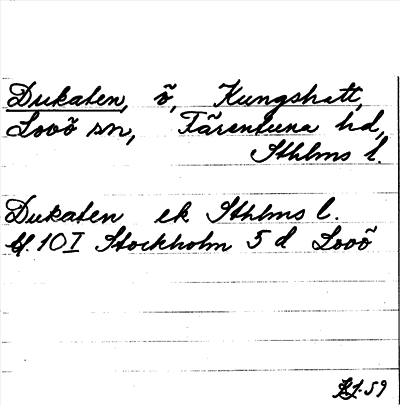 Dukaten, ö, Kungshatt,
Lovö sn, Färentuna hd,
Sthlms l.
Dukaten ek Sthlms l.
bl. 10 I Stockholm 5 d Lovö